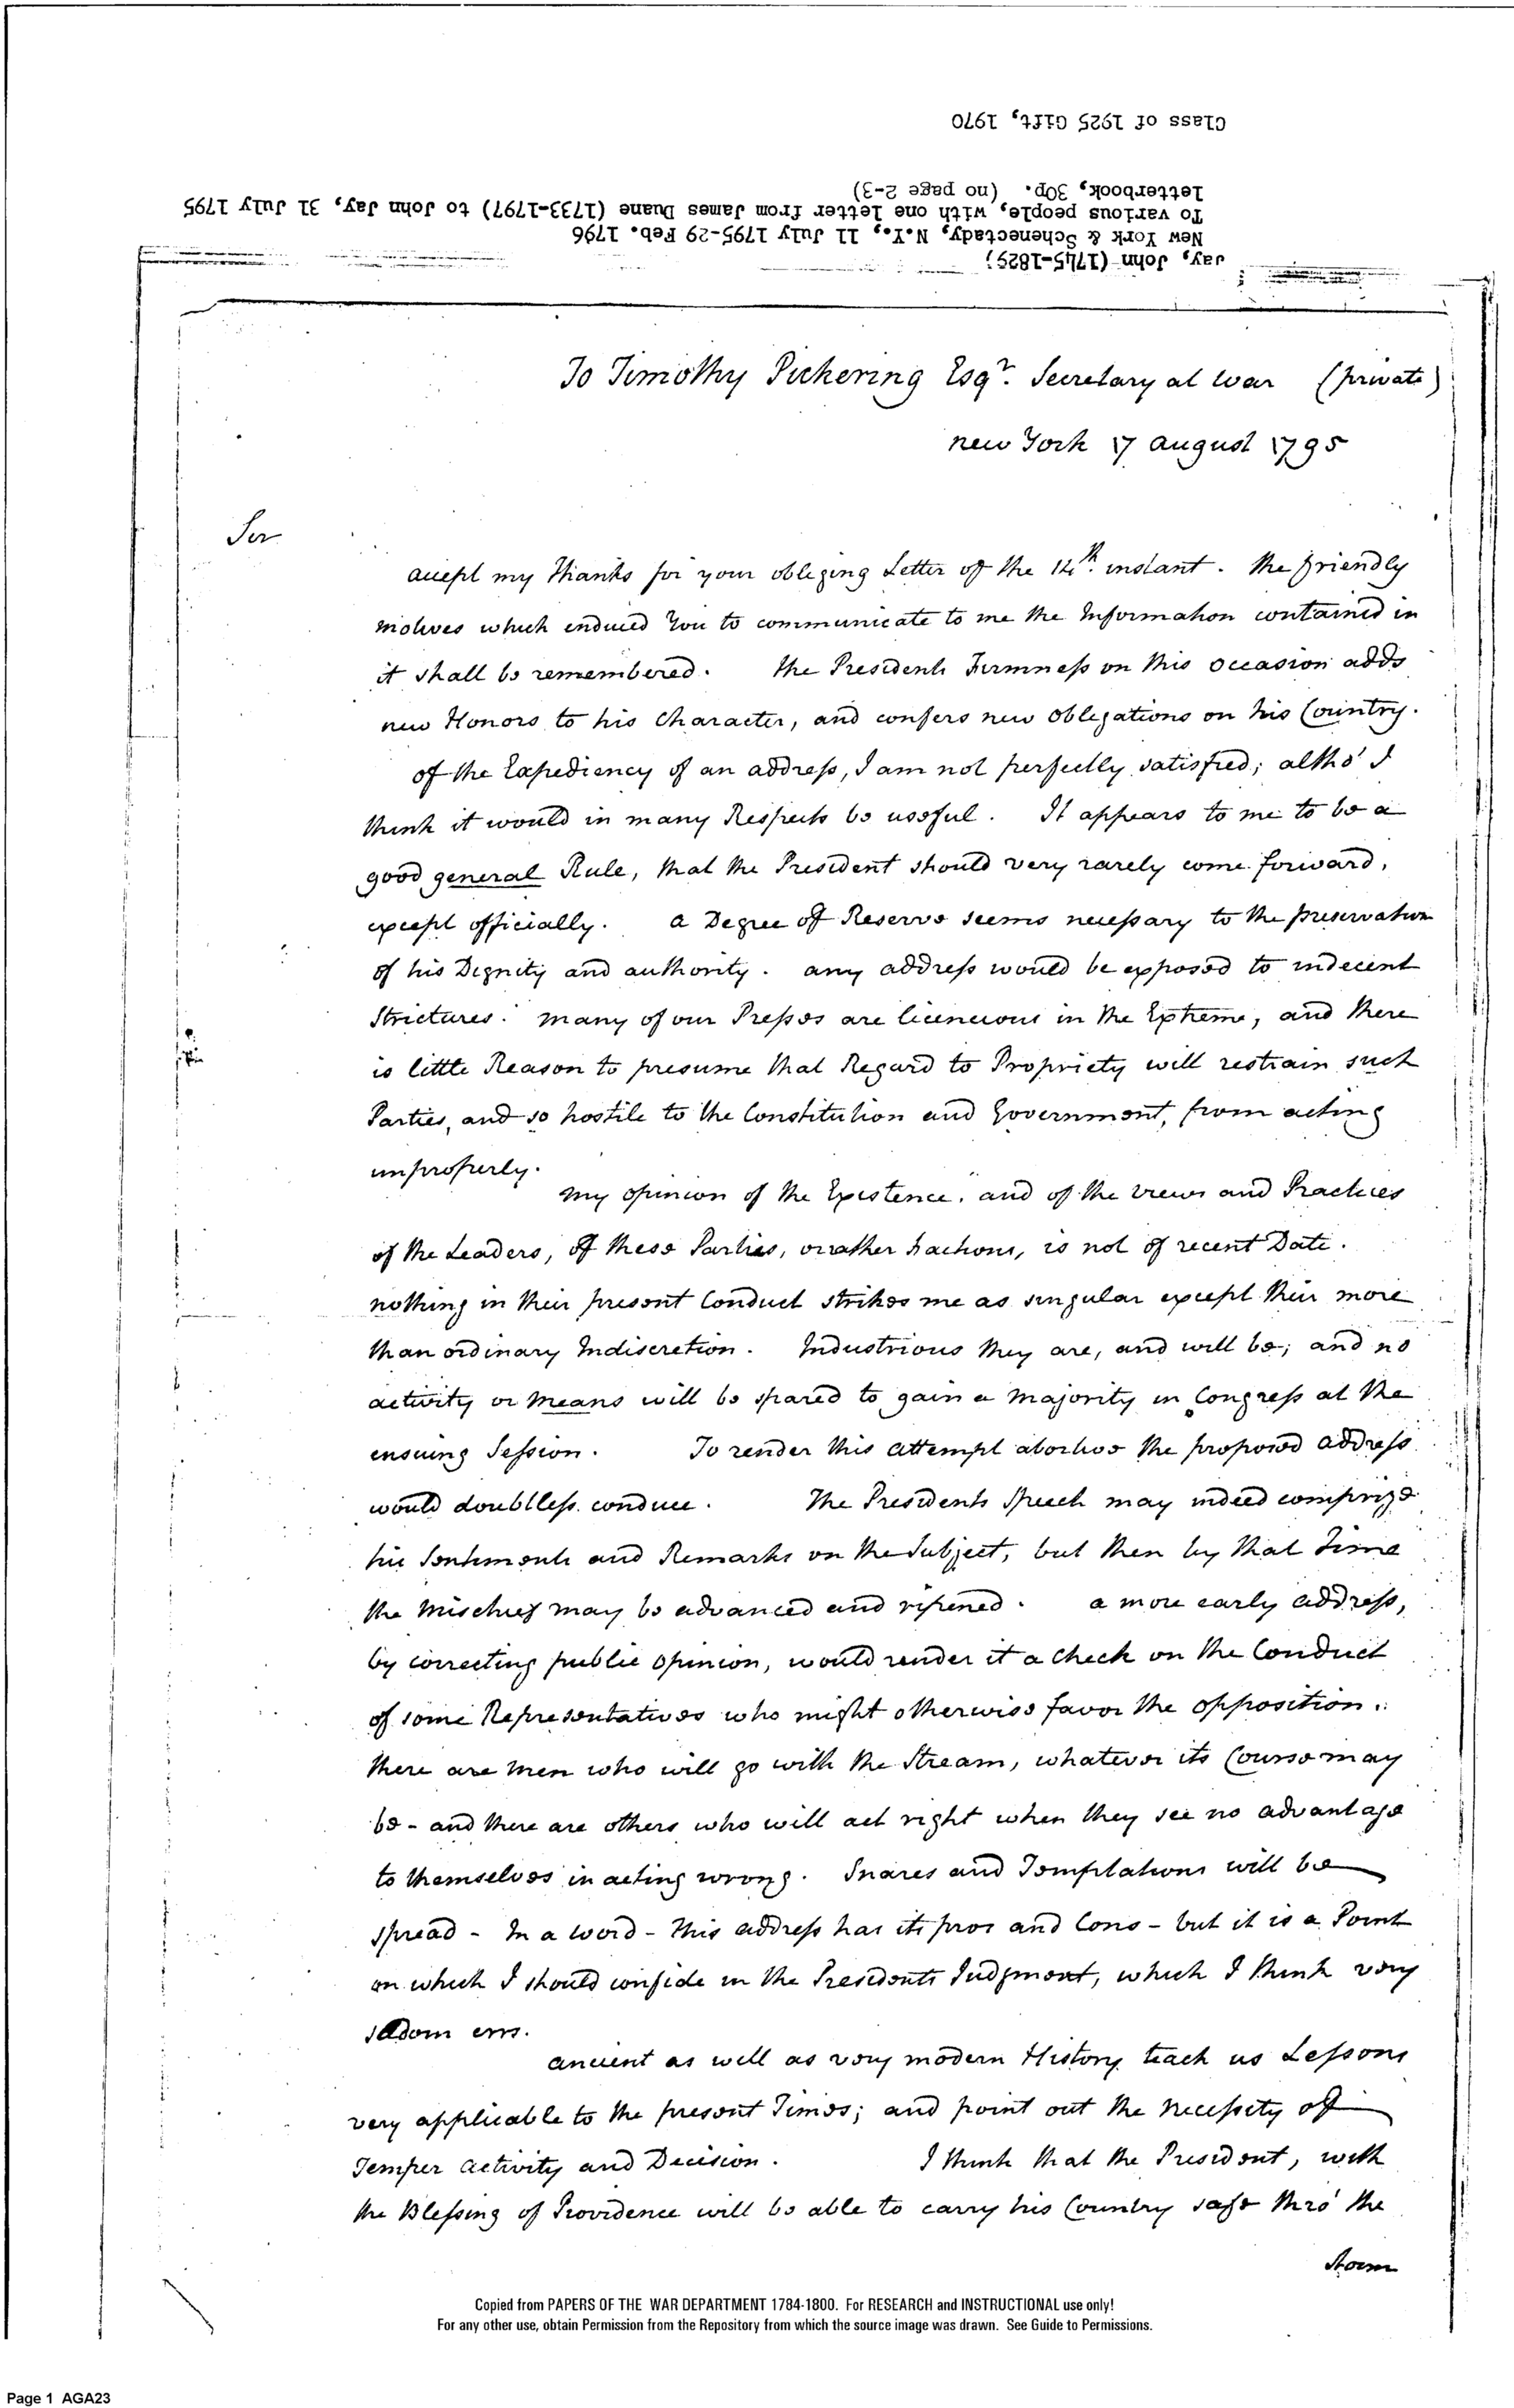 Class of 1925 Gift, 1970
Jay, John (1745-1829)
New York & Schenectady, N.Y., 11 July 1795-29 Feb. 1796
To various people, with one letter from James Duane (1733-1797) to John Jay, 31 July 1795
letterbook, 30p. (no page 2-3)
To Timothy Pickering Esqr. Secretary at War (private)
new York 17 august 1795
Sir
accept my Thanks for your obliging Letter of the 14th. instant. the friendly
motives which induced You to communicate to me the Information contained in
it shall be remembered. the Presidents Firmness on this occasion adds
new Honors to his Character, and confers new obligations on his Country.
of the Expediency of an address, I am not perfectly satisfied; altho' I
think it would in many Respects be useful. It appears to me to be a
good general Rule, that the President should very rarely come forward,
except officially. a Degree of Reserve seems necessary to the preservation
of his Dignity and authority. any address would be exposed to indecent
Strictures. many of our Presses are licencious in the Extreme, and there
is little Reason to presume that Regard to Propriety will restrain such
Parties, and so hostile to the Constitution and Government, from acting
improperly.
my opinion of the Existence, and of the views and Practices
of the Leaders, of these Parties, or rather Factions, is not of recent Date.
nothing in their present Conduct strikes me as singular except their more
than ordinary Indiscretion. Industrious they are, and will be; and no
activity or means will be spared to gain a majority in Congress at the
ensuing Session. To render this attempt abortive the proposed address
would doubtless conduce. The Presidents Speech may indeed comprize
his Sentiments and Remarks on the Subject, but then by that Time
the mischief may be advanced and ripened. a more early address,
by correcting public opinion, would render it a check on the Conduct
of some Representatives who might otherwise favor the opposition.
there are men who will go with the Stream, whatever its Course may
be - and there are others who will act right when they see no advantage
to themselves in acting wrong. Snares and Temptations will be
spread - In a word - this address has its pros and Cons - but it is a Point
on which I should confide in the Presidents Judgment, which I think very
seldom errs.
ancient as well as very modern History teach us Lessons
very applicable to the present Times; and point out the necessity of
Temper activity and Decision. I think that the President, with
the Blessing of Providence will be able to carry his Country safe thro' the
Storm
Copied from PAPERS OF THE WAR DEPARTMENT 1784-1800. For RESEARCH and INSTRUCTIONAL use only!
For any other use, obtain Permission from the Repository from which the source image was drawn. See Guide to Permissions.
Page 1 AGA23